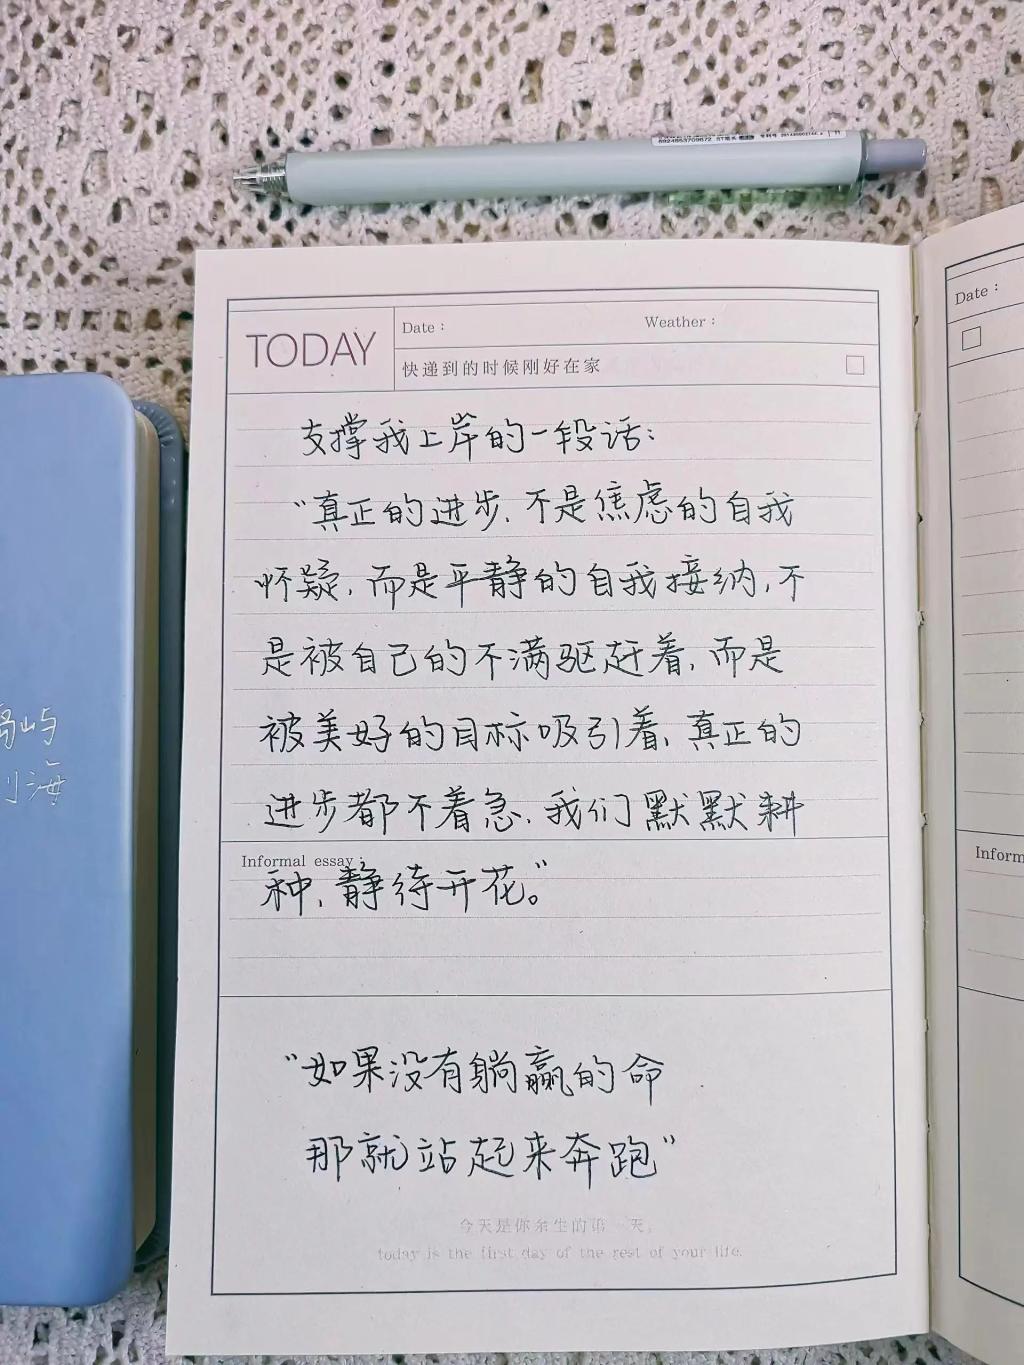 TODAY
Date :
Weather :
快递到的时候刚好在家
支撑我上岸的一段话:
“真正的进步,不是焦虑的自我
怀疑,而是平静的自我接纳,不
是被自己的不满驱赶着,而是
被美好的目标吸引着,真正的
进步都不着急,我们默默耕
Informal essay :
种,静待开花。”
“如果没有躺赢的命
那就站起来奔跑”
今天是你余生的第一天。
today is the first day of the rest of your life.
Date :
Inform
屿
海